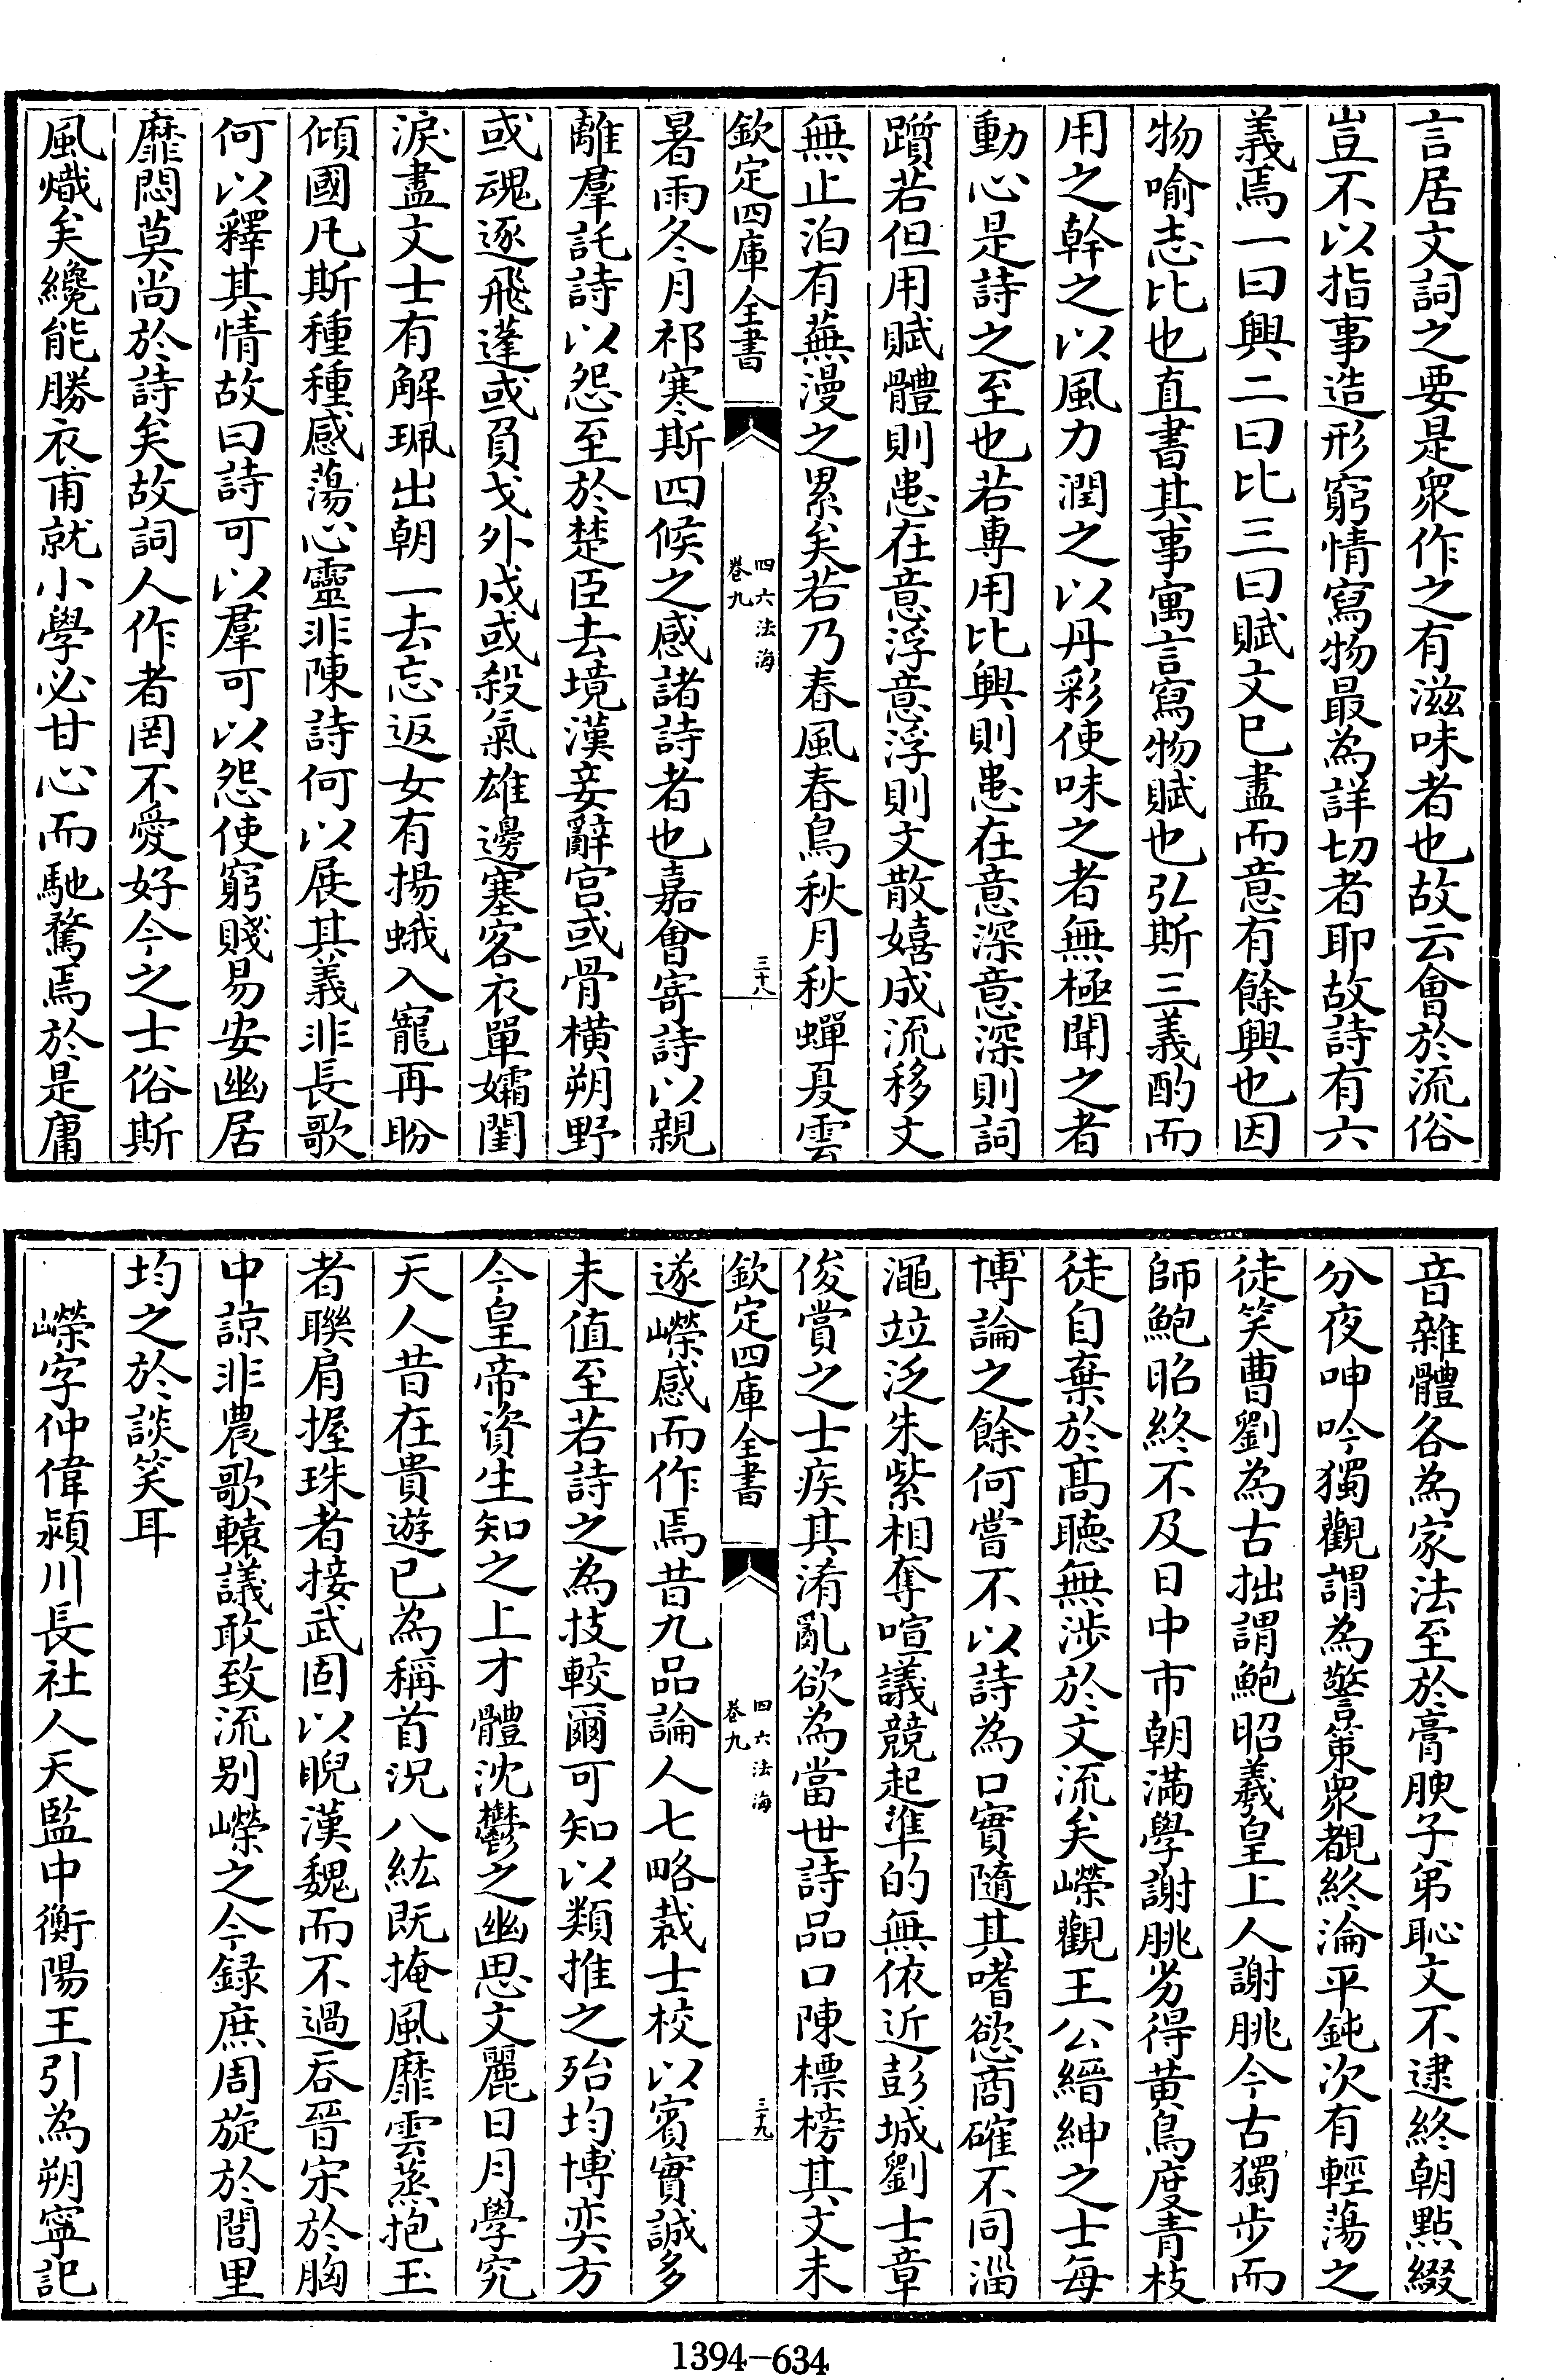 言居文詞之要是衆作之有滋味者也故云會於流俗
豈不以指事造形窮情寫物最為詳切者耶故詩有六
義焉一曰興二曰比三曰賦文已盡而意有餘興也因
物喻志比也直書其事寓言寫物賦也弘斯三義酌而
用之幹之以風力潤之以丹彩使味之者無極聞之者
動心是詩之至也若專用比興則患在意深意深則詞
躓若但用賦體則患在意浮意浮則文散嬉成流移文
無止泊有蕪漫之累矣若乃春風春鳥秋月秋蟬夏雲
欽定四庫全書
四六法海
卷九
三十八
暑雨冬月祁寒斯四候之感諸詩者也嘉會寄詩以親
離羣託詩以怨至於楚臣去境漢妾辭宮或骨橫朔野
或魂逐飛蓬或負戈外戍或殺氣雄邊塞客衣單孀閨
淚盡文士有解珮出朝一去忘返女有揚蛾入寵再盼
傾國凡斯種種感蕩心靈非陳詩何以展其義非長歌
何以釋其情故曰詩可以羣可以怨使窮賤易安幽居
靡悶莫尚於詩矣故詞人作者罔不愛好今之士俗斯
風熾矣纔能勝衣甫就小學必甘心而馳騖焉於是庸
音雜體各為家法至於膏腴子弟恥文不逮終朝點綴
分夜呻吟獨觀謂為警策衆覩終淪平鈍次有輕蕩之
徒笑曹劉為古拙謂鮑昭羲皇上人謝朓今古獨步而
師鮑昭終不及日中市朝滿學謝朓劣得黃鳥度青枝
徒自棄於髙聴無涉於文流矣嶸觀王公縉紳之士每
博論之餘何嘗不以詩為口實隨其嗜慾商確不同淄
澠竝泛朱紫相奪喧議競起準的無依近彭城劉士章
俊賞之士疾其淆亂欲為當世詩品口陳標榜其文未
欽定四庫全書
四六法海
卷九
三十九
遂嶸感而作焉昔九品論人七略裁士校以賓實誠多
未值至若詩之為技較爾可知以類推之殆均博奕方
今皇帝資生知之上才體沈鬱之幽思文麗日月學究
天人昔在貴遊已為稱首況八紘既掩風靡雲蒸抱玉
者聯肩握珠者接武固以睨漢魏而不過吞晉宋於胸
中諒非農歌轅議敢致流別嶸之今録庶周旋於閭里
均之於談笑耳
嶸字仲偉潁川長社人天監中衡陽王引為朔寧記
1394-634